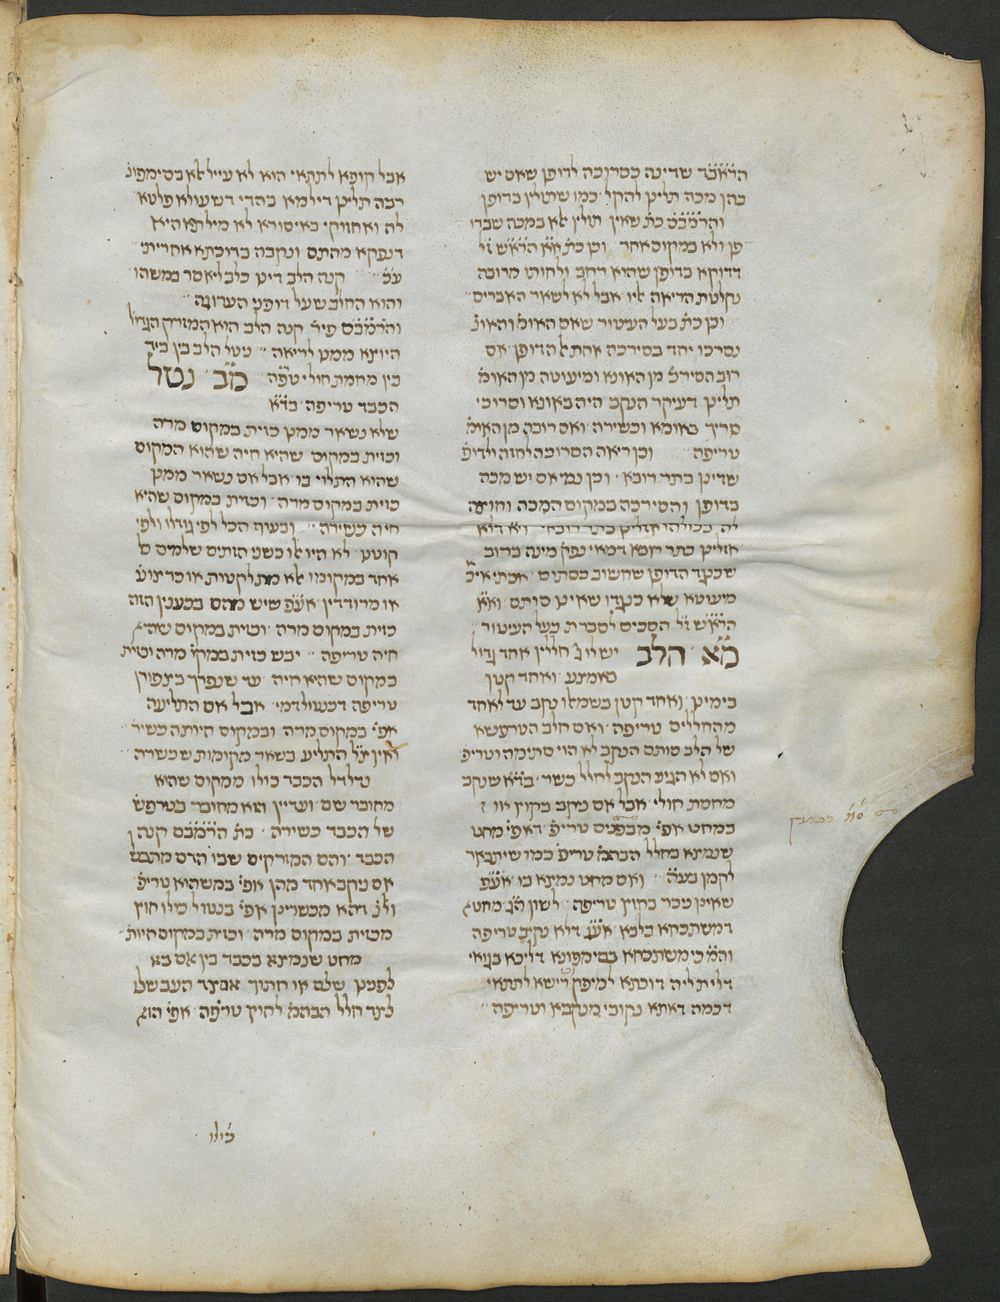 הראב״ד שדינה כסרוכה לדופן שאם יש
בהן מכה תלינן להקל כמו שתולין בדופן
והרמב״ם כת׳ שאין תולין אלא במכה שבדו
פן ולא במקום אחר וכן כת׳ א״א הרא״ש ז״ל
דדוקא בדופן שהיא רחב ולחותו מרובה
נקלטת הריאה אליו אבל לא לשאר האברים
וכן כת׳ בעל העיטור שאם האומ׳ והאונ׳
נסרכו יחד בסירכה אחת אל הדופן אם
רוב הסירכ׳ מן האונא ומיעוטה מן האומ׳
תלינן דעיקר הנקב היה באונא וסרוכי
סריך באומא וכשירה ואם רובה מן האומ׳
טריפה וכן ריאה הסרוכה לחזה ולדופ׳
שדינן בתר רובא וכן נמי אם יש מכה
בדופן והסירכה במקום המכה וחוצה
לה בכולהו אזלינן בתר רובא וא״א דלא
אזלינן בתר רובא דמאי נפק׳ מינה ברוב
שכנגד הדופן שחשוב כסתום אכתי איכ׳
מיעוטא שלא כנגדו שאינו סתום וא״א
הרא״ש ז״ל הסכים לסברת בעל העיטור
מ״א הלב יש לו ג׳ חללין אחד גדול
מאמצע ואחד קטן
בימינו ואחד קטן בשמאלו נקב עד לאחד
מהחללים טריפה ואם חלב הטרפשא
של הלב סותם הנקב לא הוי סתימה וטריפ׳
ואם לא הגיע הנקב לחלל כשר בד״א שנקב
מחמת חולי אבל אם ניקב בקוץ או
במחט אפי׳ מבפנים טריפ׳ דאפי׳ מחט
שנמצא בחלל הבהמ׳ טריפ׳ כמו שיתבאר
לקמן בע״ה ואם מחט נמצא בו אע״פ
שאינו ניכר בחוץ טריפה לשון ה״ג מחט
דמשתכחא בלבא אע״ג דלא נקיב טריפה
וה״מ כי משתכחא בסימפונא דליבא בגואי
דלית ליה דוכתא למיפק דישא לתתאי
דכמה דאתא נקובי מנקבא וטריפה
אבל קופא לתתאי הוא לא עייל אלא בסימפונ׳
רבה תלינן דילמא בהדי דשעולא פלטא
לה ואחזוקי באיסורא לא מילתא היא
דנפקא מהתם ונקבה בדוכתא אחריתי
ע״כ קנה הלב דינו כלב ליאסר במשהו
והוא החלב שעל דופני הערוגה
והרמב״ם פיר׳ קנה הלב הוא המזרק הגדול
היוצא ממנו לריאה ניטל הלב בין ביד
בין מחמת חולי טרפ׳ה מ״ב נטל
הכבד טריפה בד״א
שלא נשאר ממנו כזית במקום מרה
וכזית במקום שהיא חיה שהוא המקום
שהוא התלוי בו אבל אם נשאר ממנו
כזית במקום מרה וכזית במקום שהיא
חיה כשירה ובעוף הכל לפי גודלו ולפי
קוטנו לא היו אלו כשני הזתים שלמים כל
אחד במקומו אלא מתלקטות או כרצועה
או מרודדין אע״פ שיש מהם בכענין הזה
כזית במקום מרה וכזית במקום שהיא
חיה טריפה יבש כזית במקו׳ מרה וכזית
במקום שהיא חיה עד שנפרך בציפורן
טריפה דכנטול דמי אבל אם התליעה
אפי׳ במקום מרה ובמקום חיותה כשיר׳
ואין צ״ל התליע בשאר מקומות שכשרה
נדלדל הכבד כולו ממקום שהוא
מחובר שם ועדיין הוא מחובר בטרפש
של הכבד כשירה כת׳ הרמב״ם קנה
הכבד והם המזרקים שבו הדם מתבשל
אם ניקב אחד מהן אפי׳ במשהוא טריפ׳
ול״נ דהא מכשרינן אפי׳ בנטול כולו חוץ
מכזית במקום מרה וכזית במקום חיות׳
מחט שנמצא בכבד בין אם בא
לפנינו שלם או חתוך אם צד העב שלו
לצד חלל הבהמ׳ לחוץ טרפ׳ה אפי׳ הוא
כולו